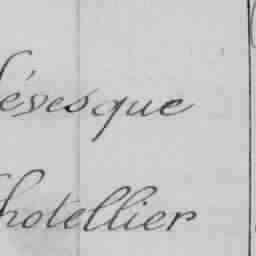 lévesque
lhotellier